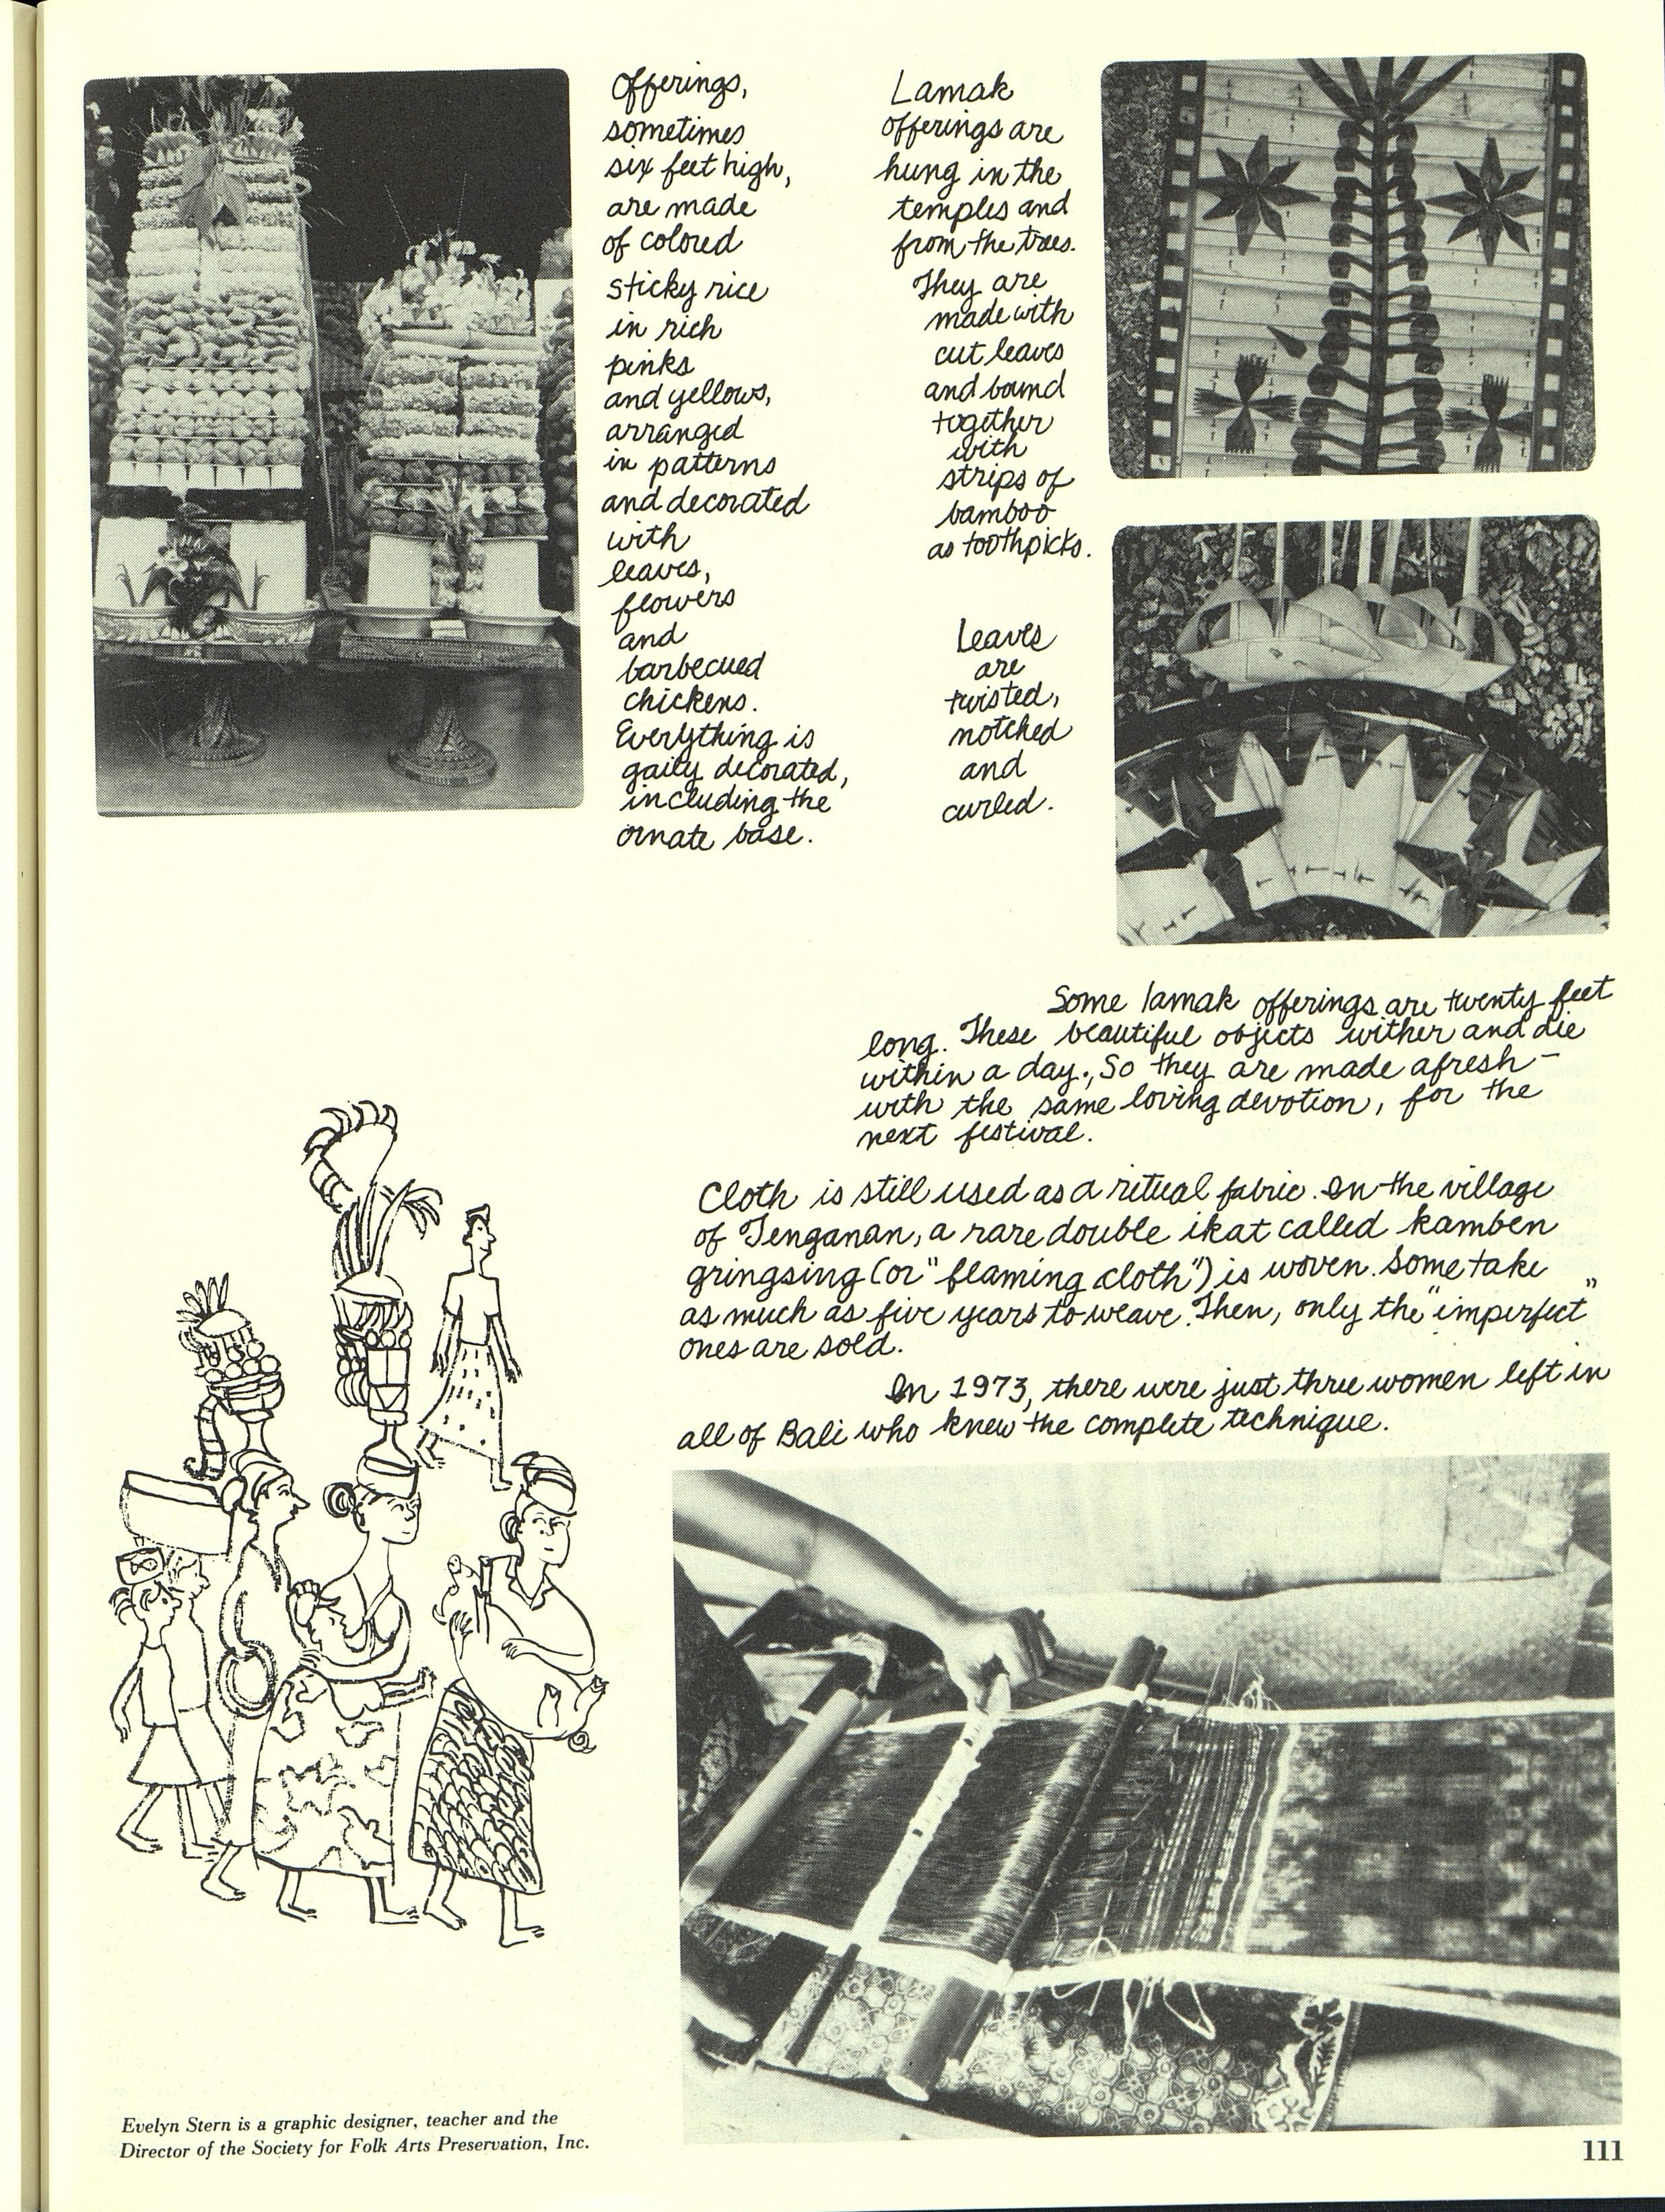 Offerings,
sometimes
six feet high,
are made
of colored
sticky rice
in rich
pinks
and yellows,
arranged
in patterns
and decorated
with
leaves,
flowers
and
barbecued
chickens.
Everything is
gaily decorated,
including the
ornate base.
Lamak
offerings are
hung in the
temples and
from the trees.
They are
made with
cut leaves
and bound
together
with
strips of
bamboo
as toothpicks.
Leaves
are
twisted,
notched
and
curled.
Some lamak offerings are twenty feet
long. These beautiful objects wither and die
within a day., So they are made afresh—
with the same loving devotion, for the
next festival.
Cloth is still used as a ritual fabric. In the village
of Tenganan, a rare double ikat called kamben
gringsing (or "flaming cloth") is woven. Some take
as much as five years to weave. Then, only the "imperfect"
ones are sold.
In 1973, there were just three women left in
all of Bali who knew the complete technique.
Evelyn Stern is a graphic designer, teacher and the
Director of the Society for Folk Arts Preservation, Inc.
111